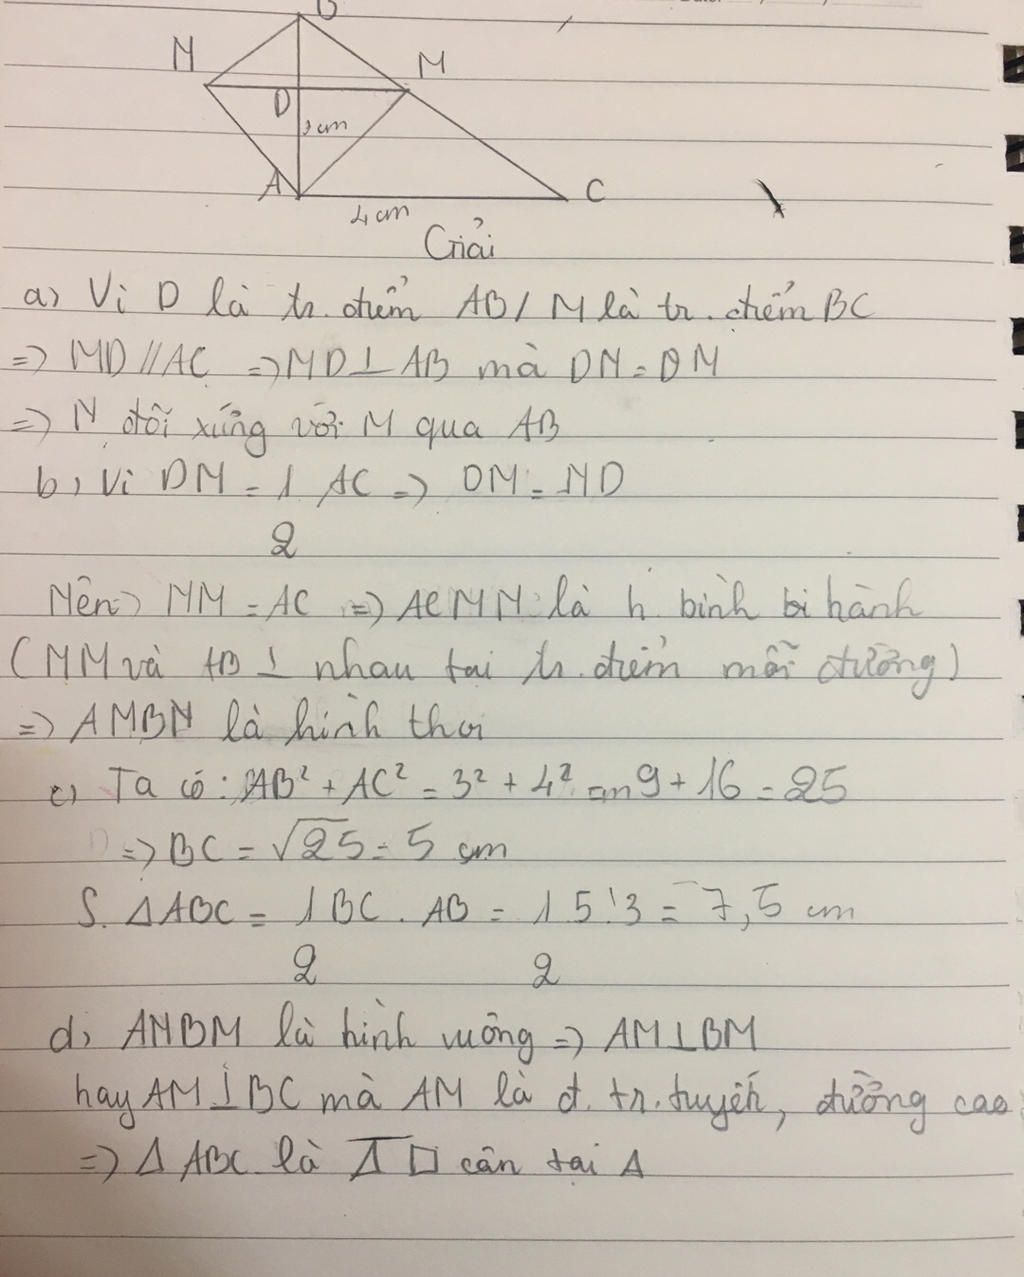 B
N
M
D
3cm
A
C
4cm
Giải
a) Vì D là tr. điểm AB / M là tr. điểm BC
=> MD // AC => MD ⊥ AB mà DN = DM
=> N đối xứng với M qua AB
b) Vì DM = 1/2 AC => DM = ND
Nên => NM = AC => ACMN là h. bình bi hành
(NM và AB ⊥ nhau tại tr. điểm mỗi đường)
=> AMBN là hình thoi
c) Ta có: AB² + AC² = 3² + 4² = 9 + 16 = 25
=> BC = √25 = 5 cm
S. ΔABC = 1/2 BC . AB = 1/2 5.3 = 7,5 cm
d) ANBM là hình vuông => AM ⊥ BM
hay AM ⊥ BC mà AM là đ. tr. tuyến, đường cao
=> Δ ABC là Δ □ cân tại A